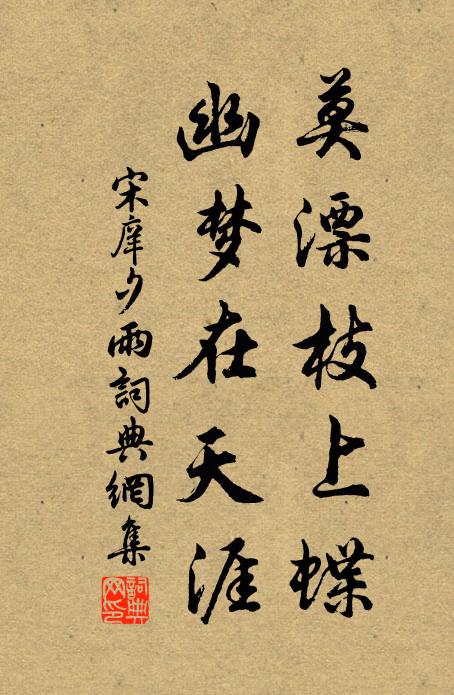 莫漂枝上蝶
幽梦在天涯
宋庠夕雨詞典網集
詞典網印